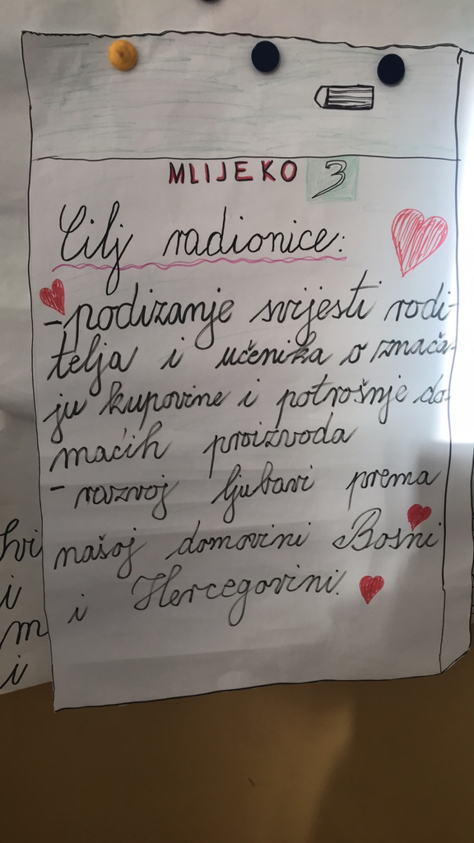 MLIJEKO 3
Cilj radionice:
-podizanje svijesti rodi-
telja i učenika o znača-
ju kupovine i potrošnje do-
maćih proizvoda
- razvoj ljubavi prema
našoj domovini Bosni
i Hercegovini.
hvi
i
m
i